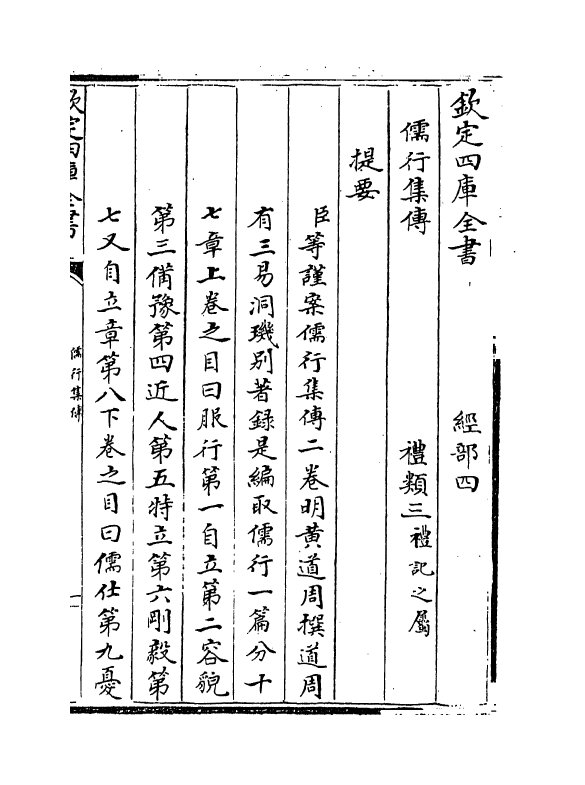 欽定四庫全書　經部四
儒行集傳　禮類三禮記之屬
提要
臣等謹案儒行集傳二卷明黄道周撰道周
有三易洞璣别著録是編取儒行一篇分十
七章上卷之目曰服行第一自立第二容貌
第三備豫第四近人第五特立第六剛毅第
七又自立章第八下卷之目曰儒仕第九憂
欽定四庫全書
儒行集傳
一